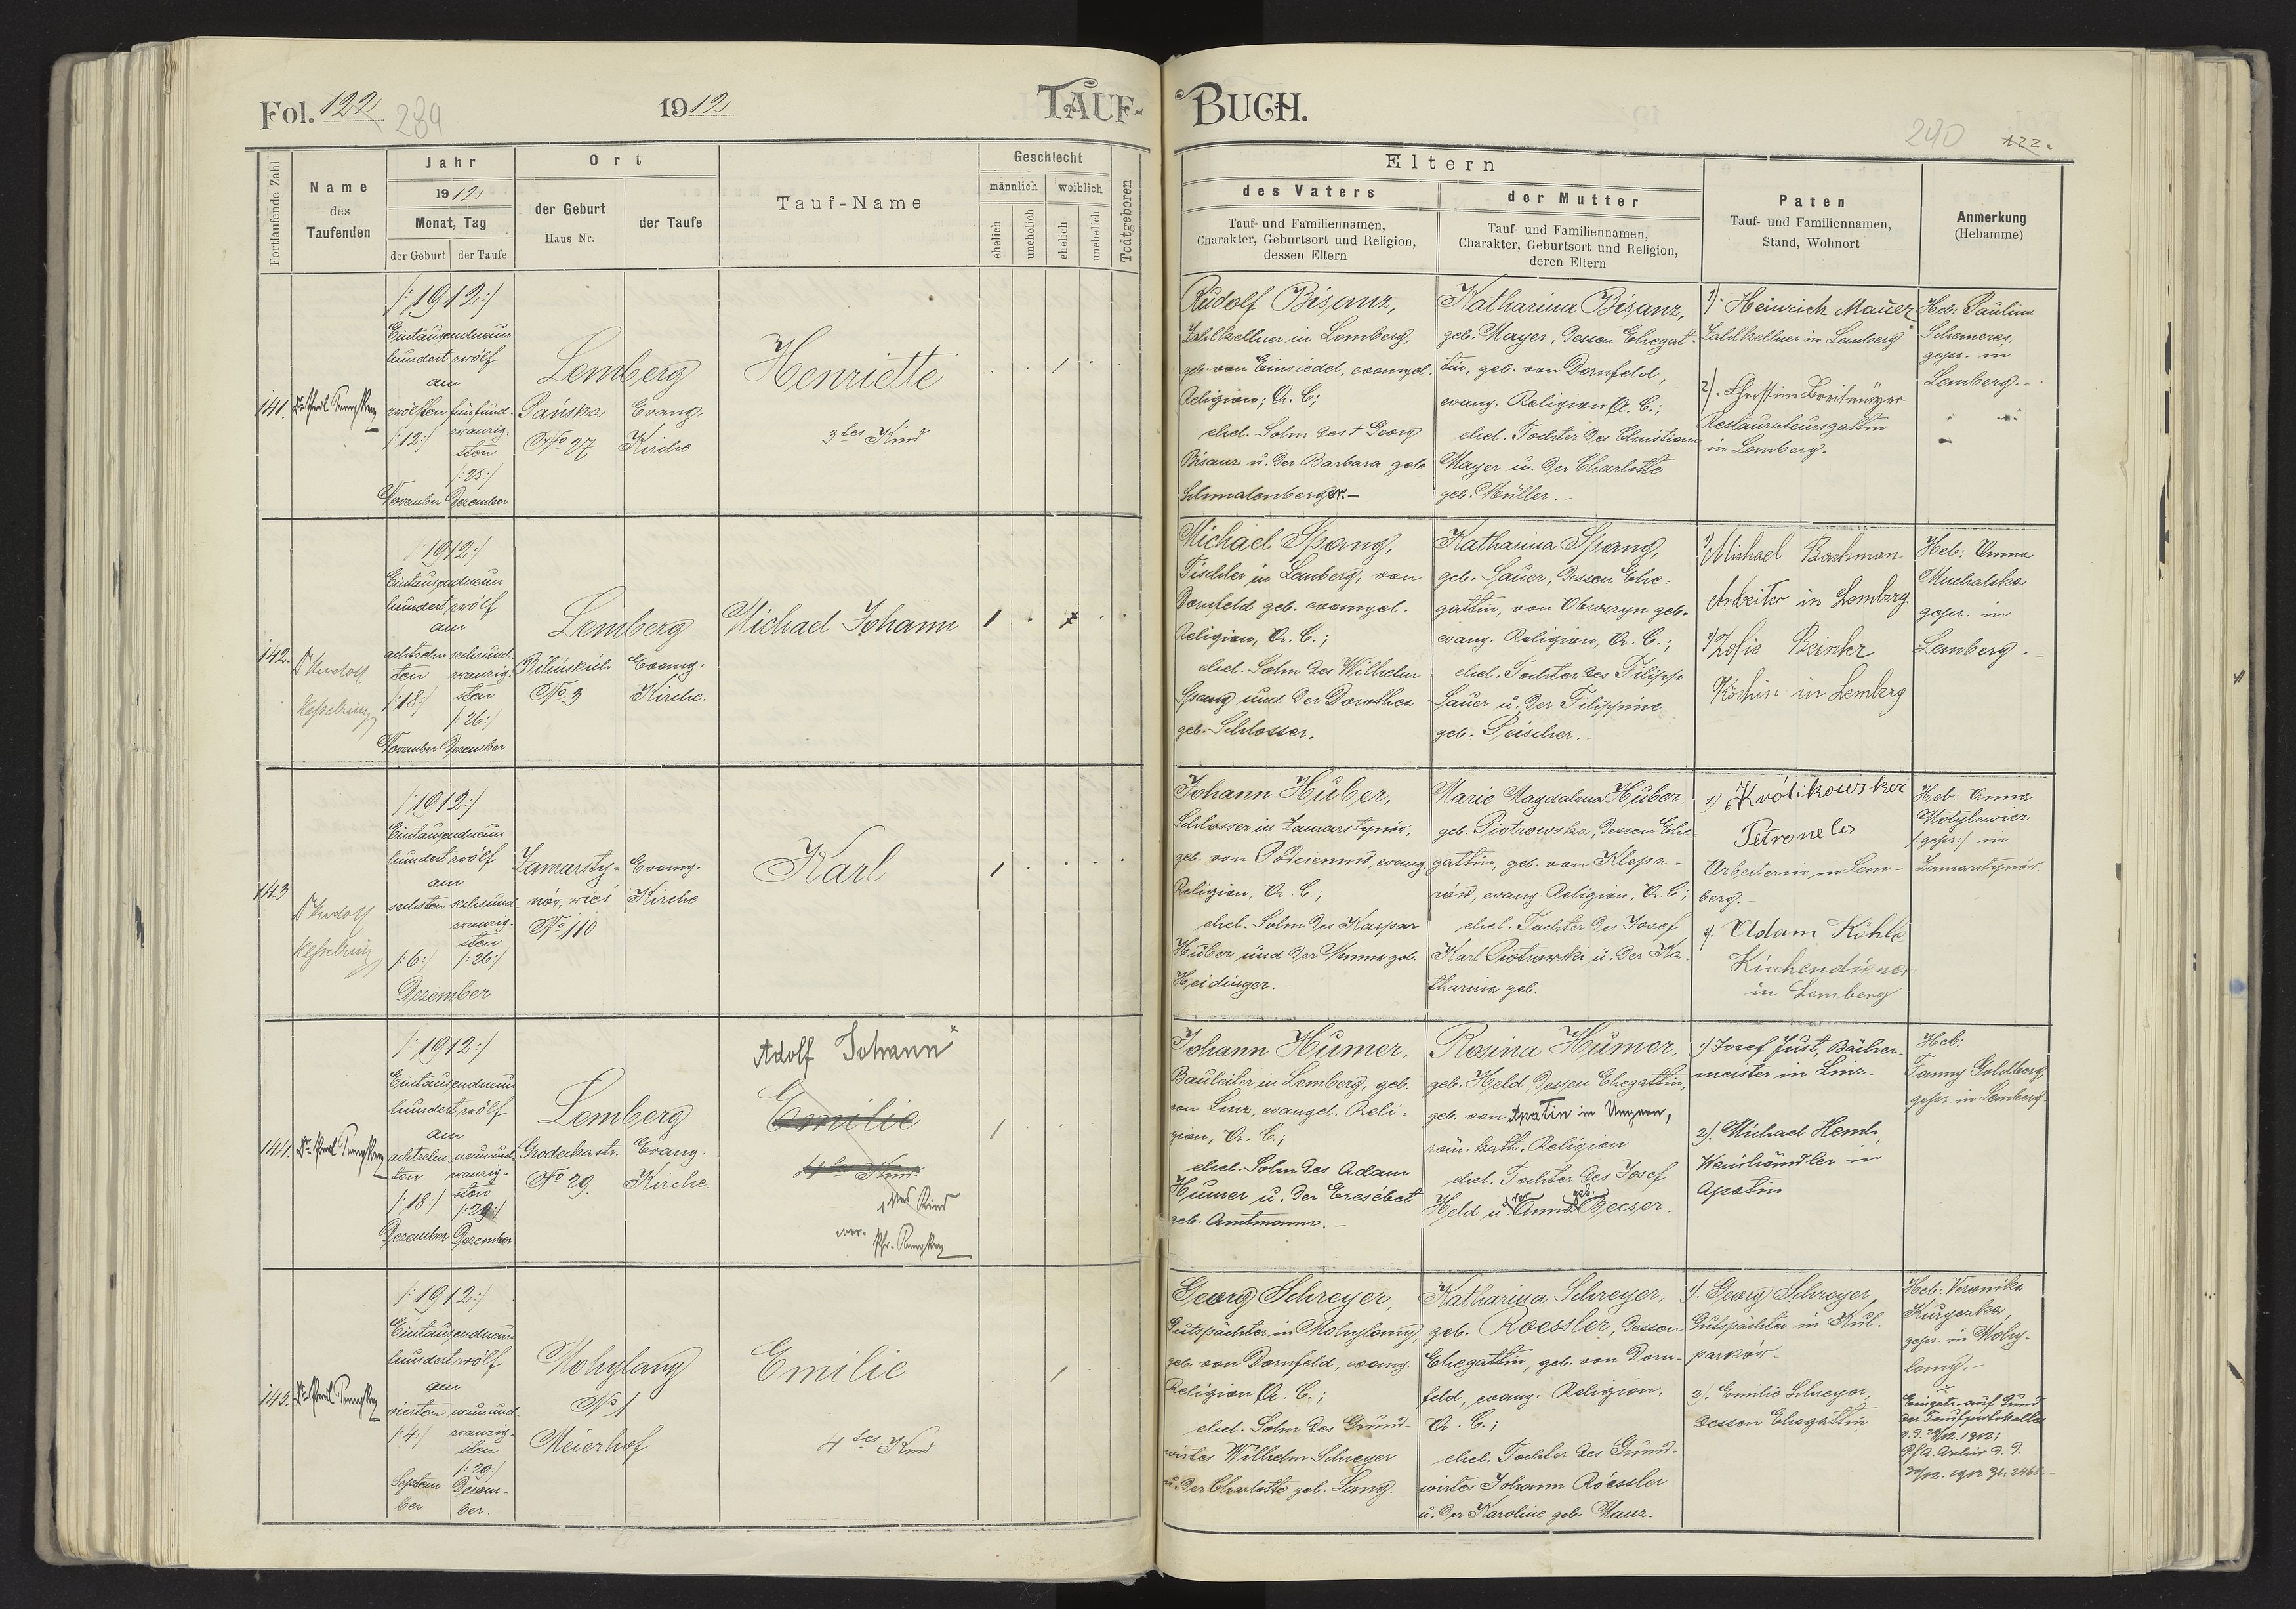 Fol. 122 289
1912
TAUF-
BUCH.
290 122.
Fortlaufende Zahl
Name
des
Taufenden
Jahr
1912
Monat, Tag
der Geburt der Taufe
Ort
der Geburt
Haus Nr.
der Taufe
Tauf-Name
Geschlecht
männlich weiblich
ehelich unehelich ehelich unehelich
Todtgeboren
Eltern
des Vaters
Tauf- und Familiennamen,
Charakter, Geburtsort und Religion,
dessen Eltern
der Mutter
Tauf- und Familiennamen,
Charakter, Geburtsort und Religion,
deren Eltern
Paten
Tauf- und Familiennamen,
Stand, Wohnort
Anmerkung
(Hebamme)
141.
/:1912:/
Eintausendneun
hundert zwölf
am
zwölften fünfund-
/:12:/ zwanzig-
sten
/:25:/
November Dezember
Lemberg
Pańska Evang.
No 27 Kirche
Henriette
3tes Kind
Rudolf Bisanz,
Zahlkellner in Lemberg,
geb. von Einsiedel, evangel.
Religion, A. C.;
ehel. Sohn des † Georg
Bisanz u. der Barbara geb
Schmalenberger.-
Katharina Bisanz,
geb. Mayer, dessen Ehegat-
tin, geb. von Dornfeld,
evang. Religion A. C.;
ehel. Tochter des Christian
Mayer u. der Charlotte
geb. Müller.-
1). Heinrich Mauer
Zahlkellner in Lemberg
2). Christine Breitmayer
Restaurateursgattin
in Lemberg.
Heb: Pauline
Schemeres,
gepr. in
Lemberg.-
142.
Dr Rudolf
Kesselring
/:1912:/
Eintausendneun
hundert zwölf
am
achtzehn- sechsund-
ten zwanzig-
/:18:/ sten
/:26:/
November Dezember
Lemberg
Evang.
No 3 Kirche.
Michael Johann
Michael Spang,
Tischler in Lemberg, von
Dornfeld geb. evangel.
Religion, A. C.;
ehel. Sohn des Wilhelm
Spang und der Dorothea
geb. Schlosser.
Katharina Spang,
geb. Sauer, dessen Ehe-
gattin, von Obroszyn geb.
evang. Religion, A. C.;
ehel. Tochter des Filipp
Sauer u. der Filippine
geb. Peischer.-
1) Michael Bachman
Arbeiter in Lemberg
2) Zofie Beinkr
Köchin in Lemberg
Heb: Anna
Muchalska
gepr. in
Lemberg.
143
Dr Rudolf
Kesselring
/:1912:/
Eintausendneun
hundert zwölf
am
sechsten sechsund
zwanzig-
sten
/:6:/ /:26:/
Dezember
Zamarsty- Evang.
nów, wieś Kirche
No 110
Karl
Johann Huber,
Schlosser in Zamarstynów,
geb. von Podciemno, evang.
Religion, A. C.;
ehel. Sohn des Kaspar
Huber und der Minna geb.
Heidinger.-
Marie Magdalena Huber
geb. Piotrowska, dessen Ehe
gattin, geb. von Klepa-
rów, evang. Religion, A. C.;
ehel. Tochter des Josef
Karl Piotrowski u. der Ka-
tharina geb.
1) Królikowsker
Petronela
Arbeiterin in Lem-
berg.-
2). Adam Köhle
Kirchendiener
in Lemberg
Heb: Anna
Motylewicz
/gepr:/ in
Zamarstynów.
144.
/:1912:/
Eintausendneun
hundert zwölf
am
achtzehn- neunund-
ten zwanzig-
/:18:/ sten
/:29:/
Dezember Dezember
Lemberg
Grodecka str. Evang.
No 29. Kirche.
Adolf Johann
Emilie
4tes Kind
1tes Kind
Johann Humer,
Bauleiter in Lemberg, geb.
von Linz, evangel. Reli-
gion, A. C.;
ehel. Sohn des Adam
Humer u. der Eresébet
geb. Amtmann.-
Rosina Humer,
geb. Held, dessen Ehegattin,
geb. von Apatin in Ungarn,
röm. kath. Religion
ehel. Tochter des Josef
Held u. der Anna geb. Becser.
1) Josef Just, Bäcker-
meister in Linz.
2). Michael Hemb,
Weinhändler in
Apatin
Heb:
Fanny Goldberg,
gepr. in Lemberg
145.
/:1912:/
Eintausendneun
hundert zwölf
am
vierten neunund-
/:4:/ zwanzig-
sten
/:29:/
Septem- Dezem-
ber ber.
Mohylany
No 1
Meierhof
Emilie
4tes Kind
Georg Schreyer,
Gutspächter in Mohylany,
geb. von Dornfeld, evang.
Religion A. C.;
ehel. Sohn des Grund-
wirtes Wilhelm Schreyer
u. der Charlotte geb. Lang.
Katharina Schreyer,
geb. Roessler, dessen
Ehegattin, geb. von Dorn-
feld, evang. Religion,
A. C.;
ehel. Tochter des Grund-
wirtes Johann Roessler
u. der Karoline geb. Manz.
1). Georg Schreyer,
Gutspächter in Kul-
parków.
2). Emilie Schreyer,
dessen Ehegattin
Heb: Veronika
gepr. in Mohy-
lany.-
Eingetr. auf Grund
des Taufprotokolles